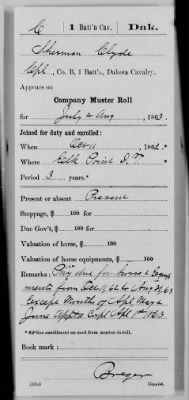 C | 1 Batt'n Cav. | Dak.
Sherman Clyde
Cpl., Co. B, 1 Batt'n, Dakota Cavalry.
Appears on
Company Muster Roll
for July & Aug, 1863.
Joined for duty and enrolled:
When Oct 11, 1862.*
Where Elk Point D.T.
Period 3 years.*
Present or absent Present
Stoppage, $ 100 for
Due Gov't, $ 100 for
Valuation of horse, $ 100
Valuation of horse equipments, $ 100
Remarks: Pay due for horse & Equip
ments from Dec 16 62 to Aug 31, 63
Except Months of Apl May &
June Apptd Corpl Apl 1st 1863
*See enrollment on card from muster-in roll.
Book mark:
Copyist.